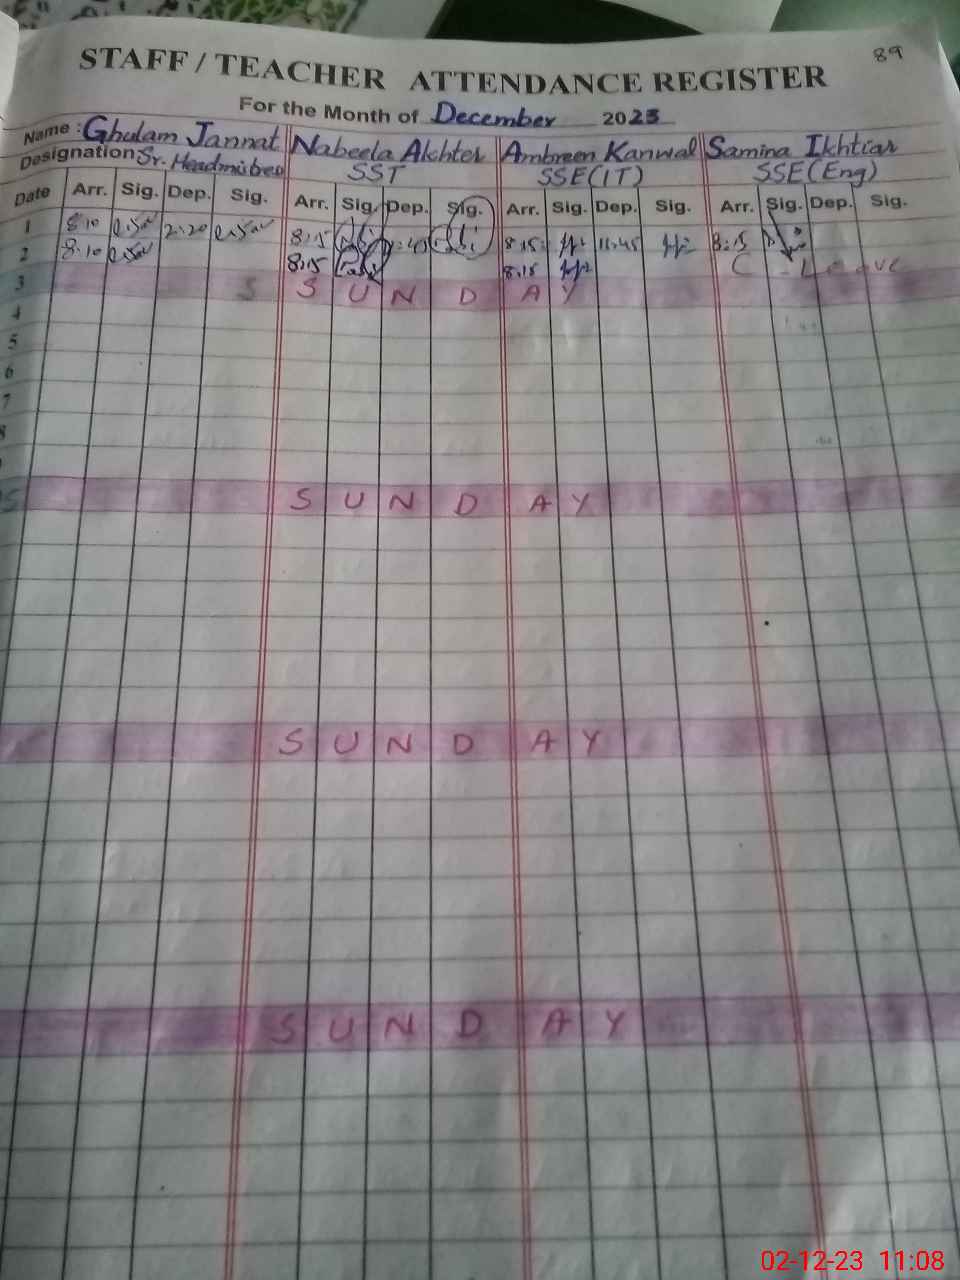 89
STAFF / TEACHER ATTENDANCE REGISTER
For the Month of December 2023
Name : Ghulam Jannat Nabeela Akhter Ambreen Kanwal Samina Ikhtiar
Designation Sr. Headmistress SST SSE(IT) SSE(Eng)
Date Arr. Sig. Dep. Sig. Arr. Sig. Dep. Sig. Arr. Sig. Dep. Sig. Arr. Sig. Dep. Sig.
1 8:10 2:20 8:15 8:15 11:45 8:15
2 8:10 8:15 8:15 C - Leave
3 S S U N D A Y
4
5
6
7
8
S U N D A Y
S U N D A Y
S U N D A Y
02-12-23 11:08